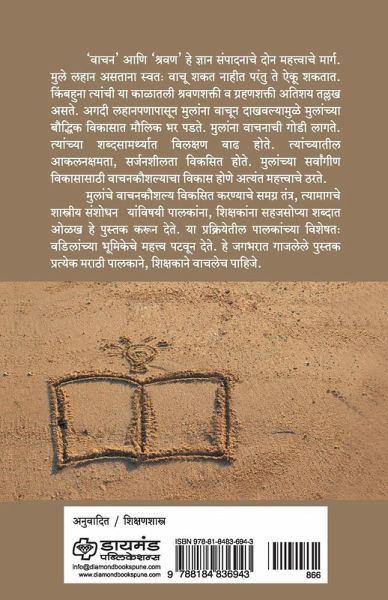 ‘वाचन’ आणि ‘श्रवण’ हे ज्ञान संपादनाचे दोन महत्त्वाचे मार्ग.
मुले लहान असताना स्वतः वाचू शकत नाहीत परंतु ते ऐकू शकतात.
किंबहुना त्यांची या काळातली श्रवणशक्ती व ग्रहणशक्ती अतिशय तल्लख
असते. अगदी लहानपणापासून मुलांना वाचून दाखवल्यामुळे मुलांच्या
बौद्धिक विकासात मौलिक भर पडते. मुलांना वाचनाची गोडी लागते.
त्यांच्या शब्दसामर्थ्यात विलक्षण वाढ होते. त्यांच्यातील
आकलनक्षमता, सर्जनशीलता विकसित होते. मुलांच्या सर्वांगीण
विकासासाठी वाचनकौशल्याचा विकास होणे अत्यंत महत्त्वाचे ठरते.
मुलांचे वाचनकौशल्य विकसित करण्याचे समग्र तंत्र, त्यामागचे
शास्त्रीय संशोधन यांविषयी पालकांना, शिक्षकांना सहजसोप्या शब्दात
ओळख हे पुस्तक करून देते. या प्रक्रियेतील पालकांच्या विशेषतः
वडिलांच्या भूमिकेचे महत्त्व पटवून देते. हे जगभरात गाजलेले पुस्तक
प्रत्येक मराठी पालकाने, शिक्षकाने वाचलेच पाहिजे.
अनुवादित / शिक्षणशास्त्र
डायमंड
पब्लिकेशन्स
info@diamondbookspune.com
www.diamondbookspune.com
ISBN 978-81-8483-694-3
9 788184 836943
866